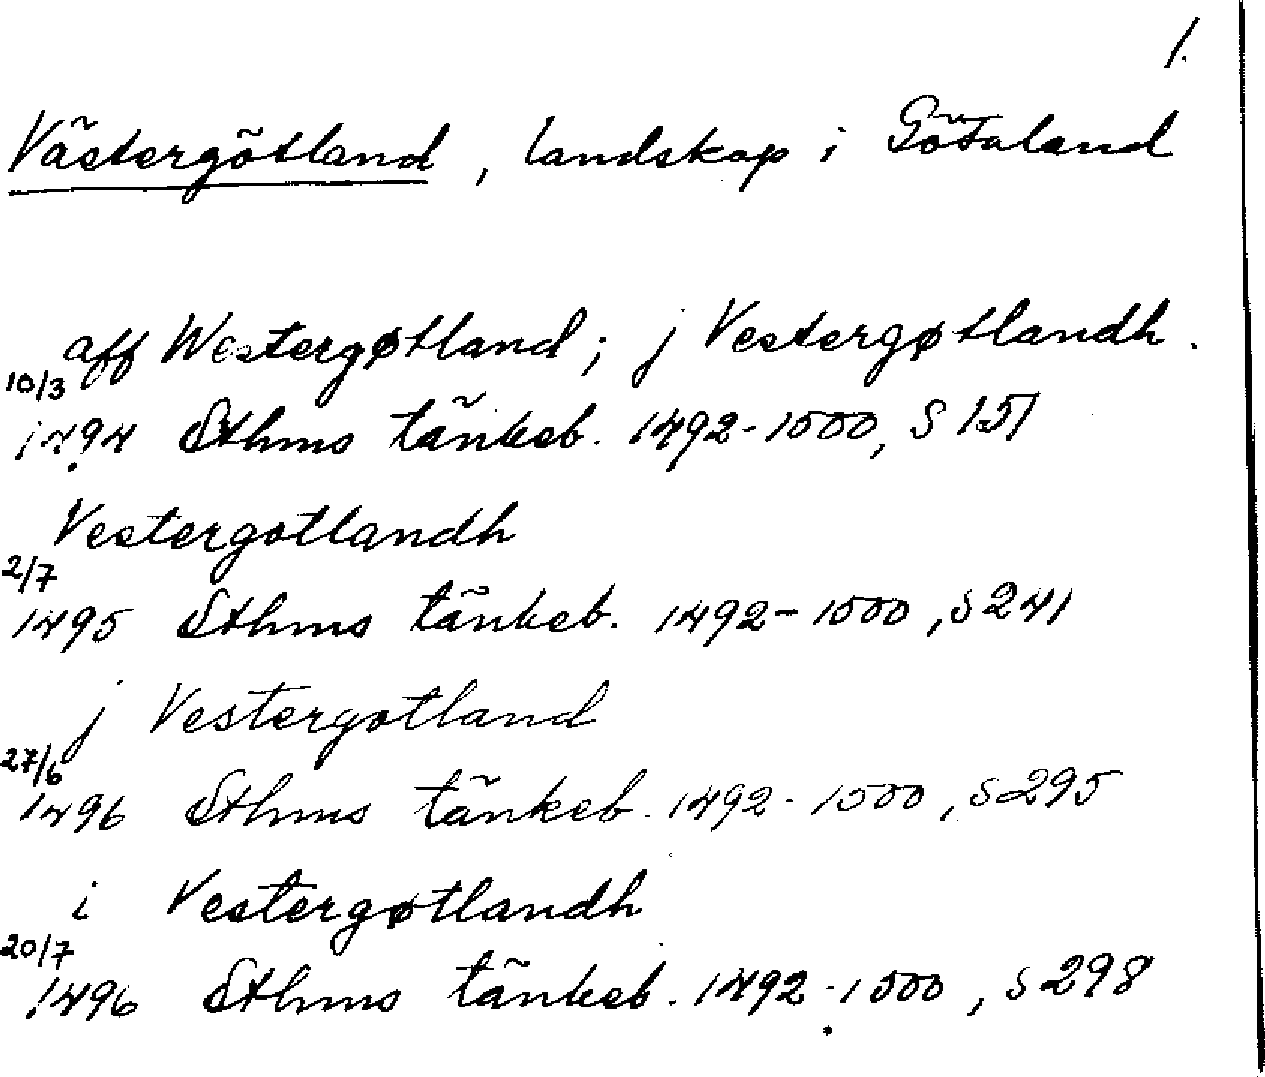 1.
Västergötland, landskap i Götaland
aff Westergøtland; j Vestergøtlandh.
10/3
1494 Sthms tänkeb. 1492-1500, S 151
Vestergotlandh
2/7
1495 Sthms tänkeb. 1492-1500, s 241
j Vestergotland
27/6
1496 Sthms tänkeb. 1492-1500, s 295
i Vestergøtlandh
20/7
1496 Sthms tänkeb. 1492-1500, s 298